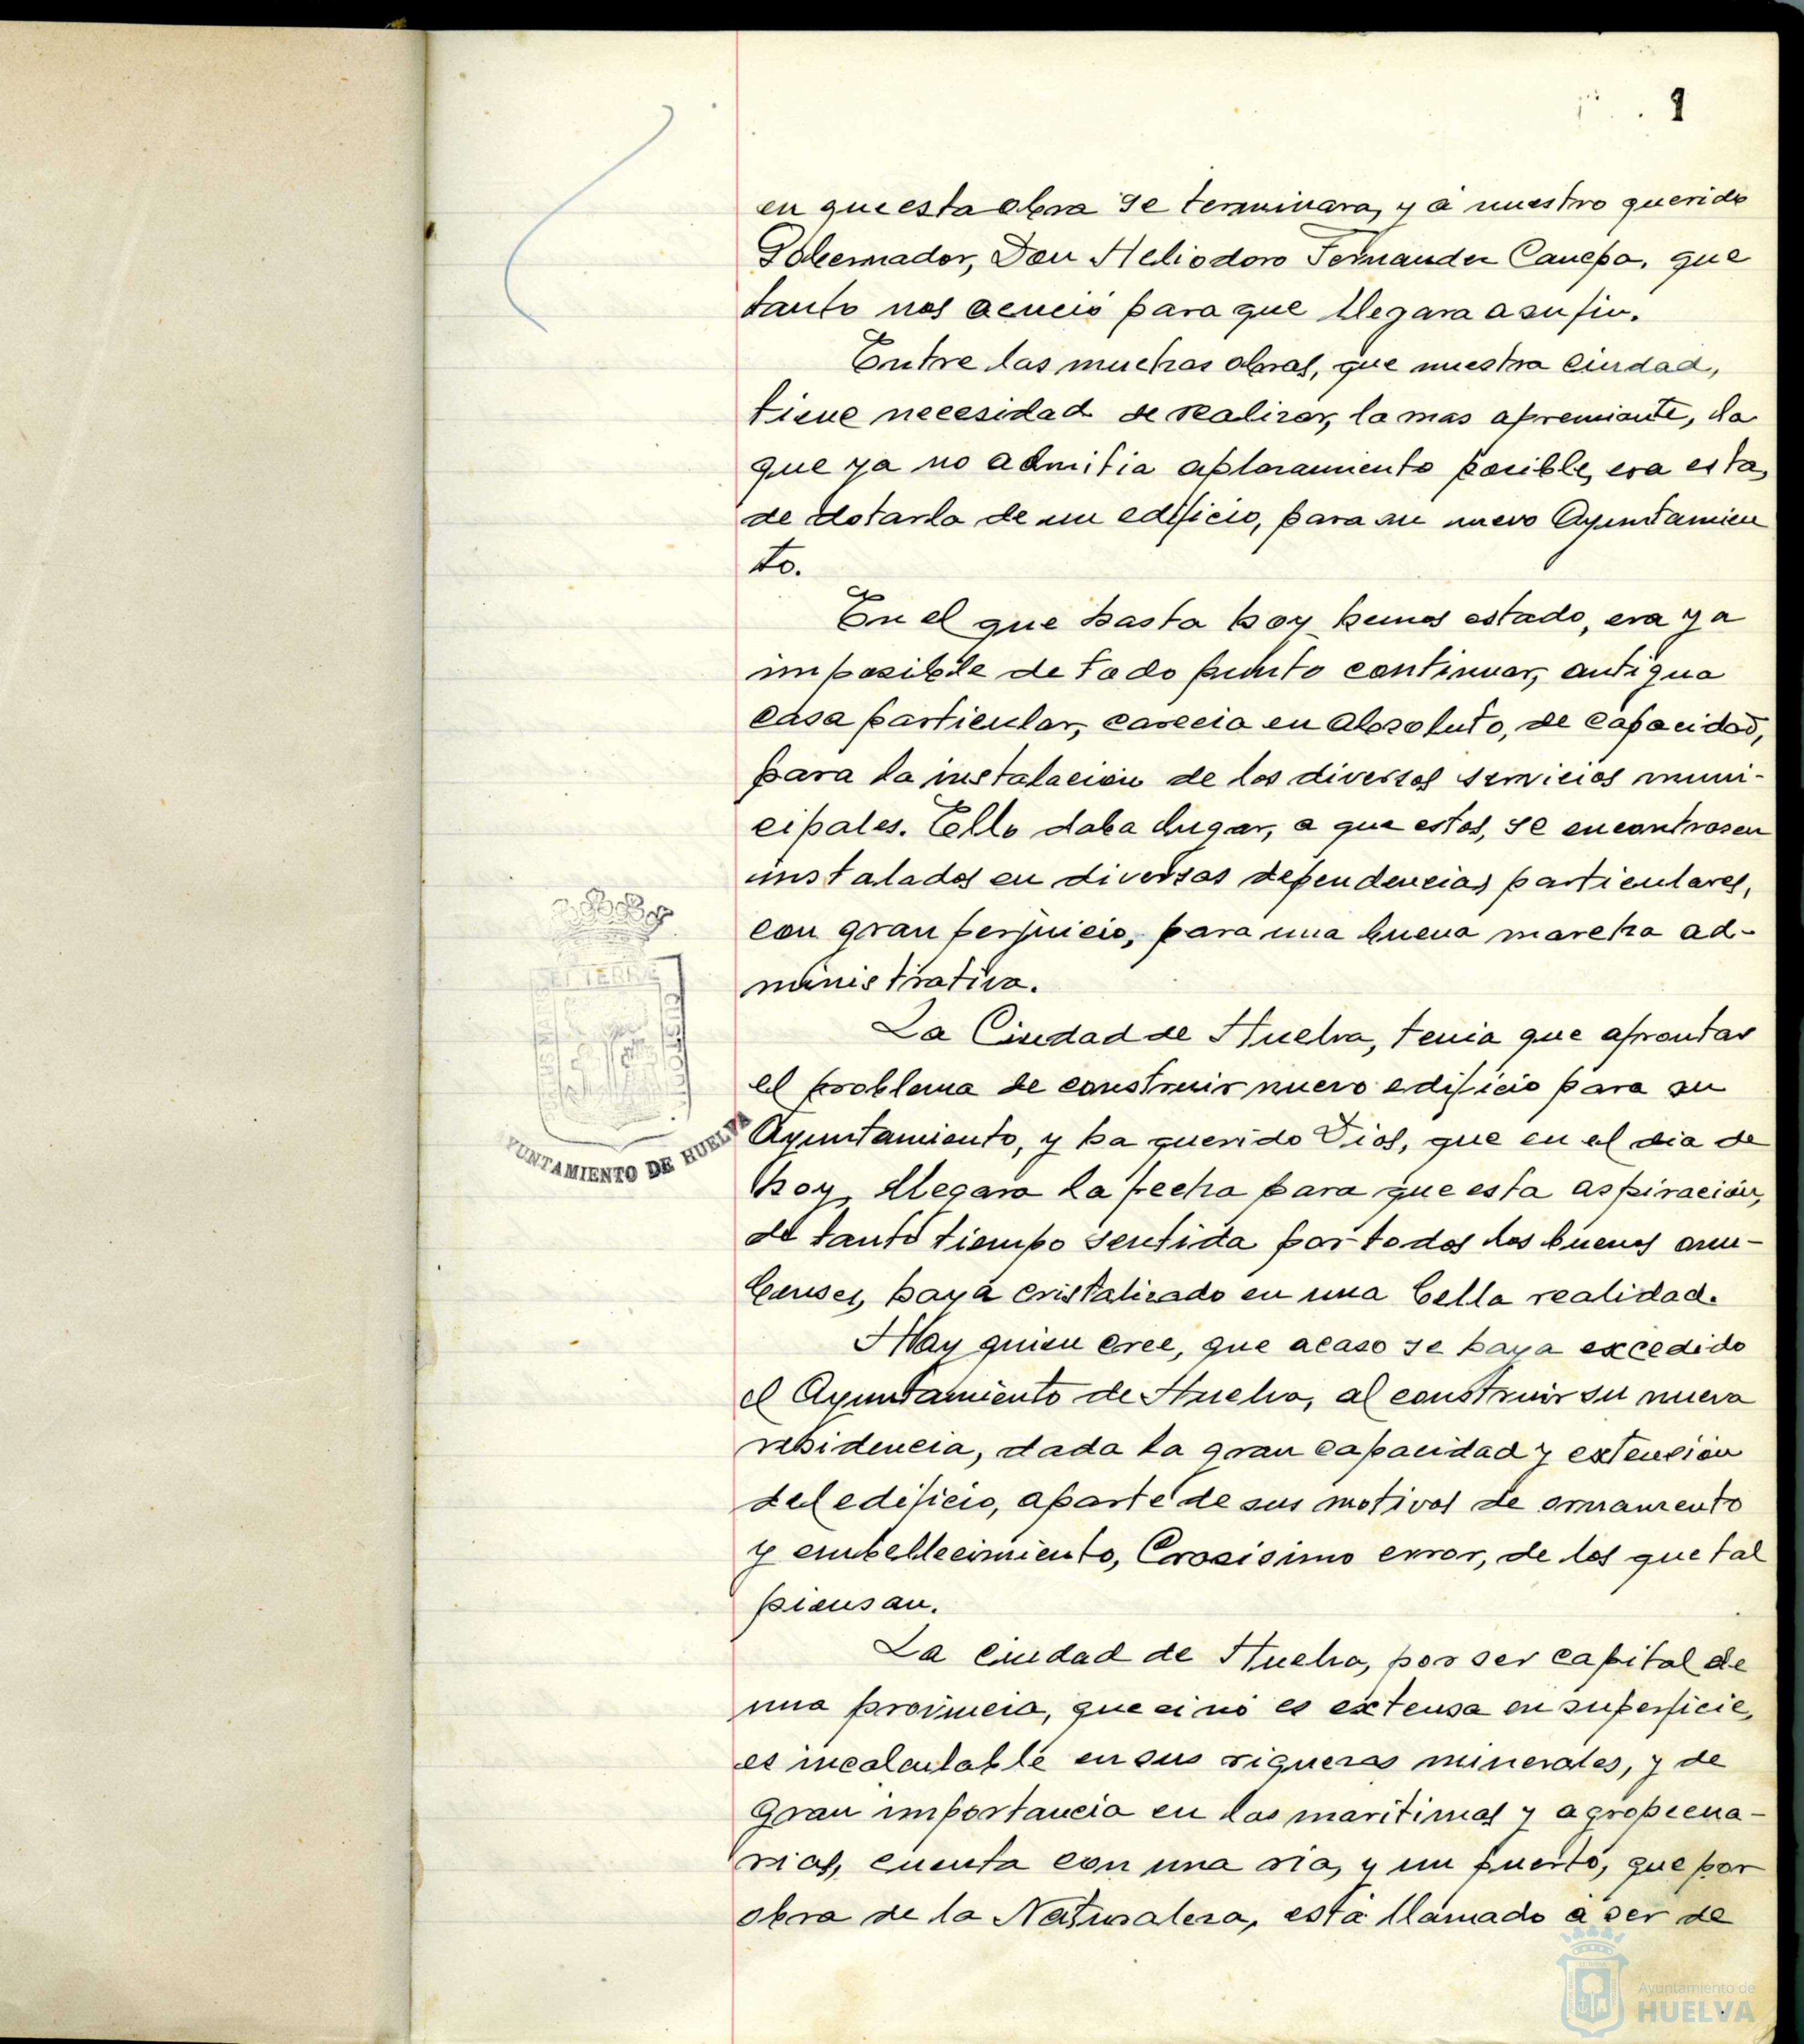 1
en que esta obra se terminara, y á nuestro querido
Gobernador, Don Heliodoro Fernandez Canepa, que
tanto nos acució para que llegara a su fin.
Entre las muchas obras, que nuestra Ciudad,
tiene necesidad de realizar, la mas apremiante, la
que ya no admitia aplazamiento posible, era esta,
de dotarla de un edificio, para su nuevo Ayuntamien
to.
En el que hasta hoy hemos estado, era ya
imposible de todo punto continuar, antigua
casa particular, carecia en absoluto, de capacidad,
para la instalación de los diversos servicios muni-
cipales. Ello daba lugar, a que estos, se encontrasen
instalados en diversas dependencias particulares,
con gran perjuicio, para una buena marcha ad-
ministrativa.
La Ciudad de Huelva, tenia que afrontar
el problema de construir nuevo edificio para su
Ayuntamiento, y ha querido Dios, que en el dia de
hoy, llegara la fecha para que esta aspiración,
de tanto tiempo sentida por todos los buenos onu-
benses, haya cristalizado en una bella realidad.
Hay quien cree, que acaso se haya excedido
el Ayuntamiento de Huelva, al construir su nueva
residencia, dada la gran capacidad y extensión
del edificio, aparte de sus motivos de ornamento
y embellecimiento, Crasisimo error, de los que tal
piensan.
La Ciudad de Huelva, por ser capital de
una provincia, que si nó es extensa en superficie,
es incalculable en sus riquezas minerales, y de
gran importancia en las maritimas y agropecua-
rias, cuenta con una ria, y un puerto, que por
obra de la Naturaleza, está llamado á ser de
YUNTAMIENTO DE HUELVA
Ayuntamiento de
HUELVA